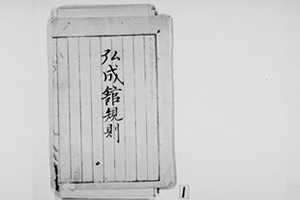 弘成館規則
1